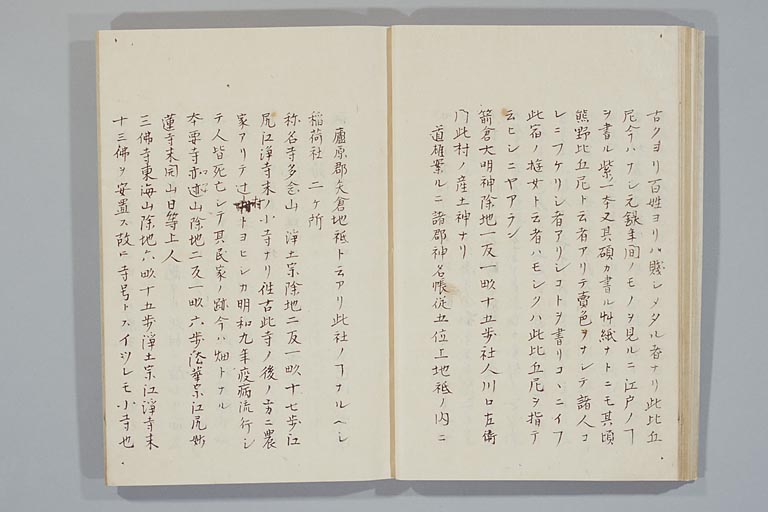 古クヨリ百姓ヨリハ賤シメタル者ナリ此比丘
尼今ハナシ元録年間ノモノヲ見ルニ江戸ノヿ
ヲ書ル紫一本又其磧カ書ル艸紙ナトニモ其頃
熊野比丘尼ト云者アリテ賣色ヲナシテ諸人コ
レニフケリシ者アリシコトヲ書リコヽニイフ
此宿ノ遊女ト云者ハモシクハ此比丘尼ヲ指テ
云ヒシニヤアラン
箭倉大明神除地一反一畝十五歩社人川口左衛
門此村ノ産土神ナリ
道雄案ルニ諸郡神名帳従五位上地祇ノ内ニ
廬原郡矢倉地祇ト云アリ此社ノヿナルヘシ
稲荷社 二ヶ所
称名寺多念山 浄土宗除地二反一畝十七歩江
尻江浄寺末ノ小寺ナリ往古此寺ノ後ノ方ニ農
家アリテ辻村トヨヒシカ明和九年疫病流行シ
テ人皆死亡シテ其民家ノ跡今ハ畑トナル
本要寺 山除地二反一畝六歩法華宗江尻妙
蓮寺末開山日等上人
三佛寺東海山除地六畝十五歩浄土宗江浄寺末
十三佛ヲ安置ス故ニ寺号トスイツレモ小寺也